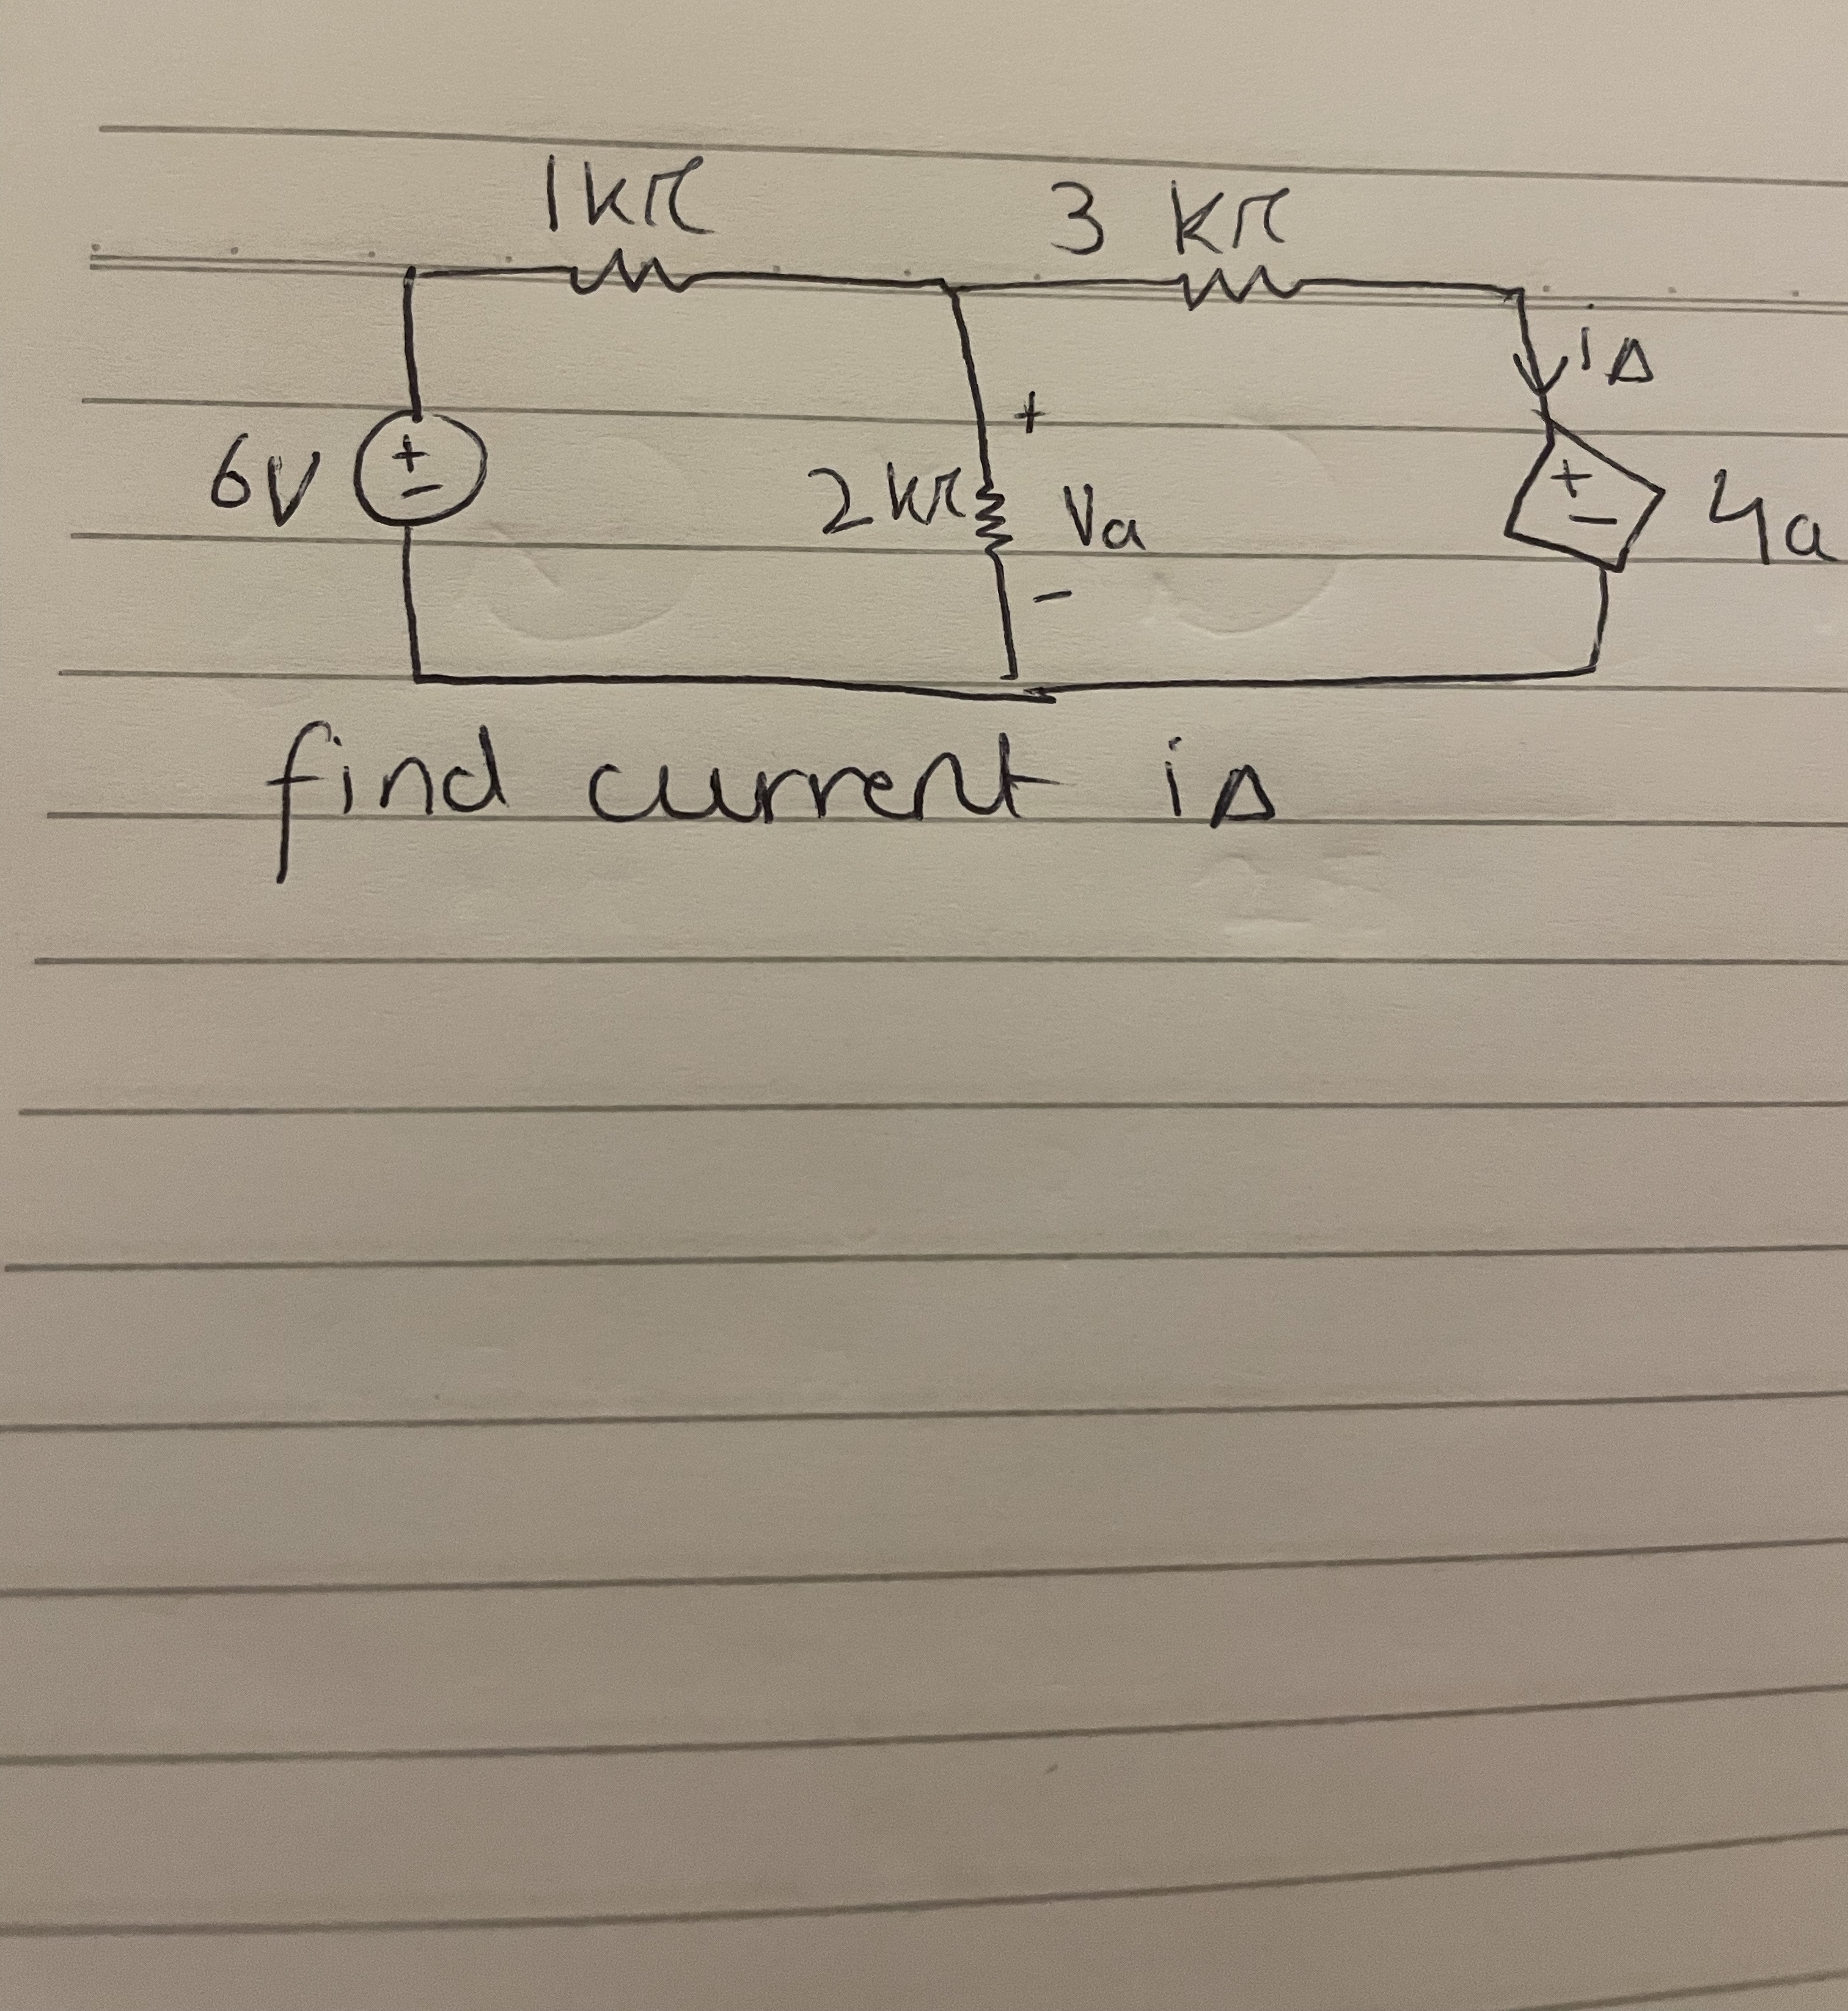 1kΩ 3 kΩ
iΔ
+
6V + - 2kΩ Va + - 4a
-
find current iΔ